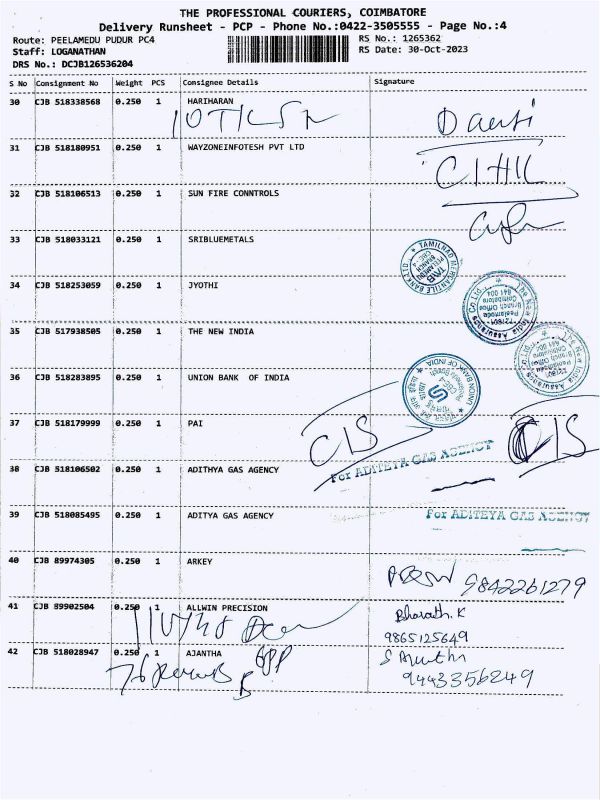 THE PROFESSIONAL COURIERS, COIMBATORE
Delivery Runsheet - PCP - Phone No.:0422-3505555 - Page No.:4
Route: PEELAMEDU PUDUR PC4
Staff: LOGANATHAN
DRS No.: DCJB126536204
RS No.: 1265362
RS Date: 30-Oct-2023
S No Consignment No Weight PCS Consignee Details Signature
30 CJB 518338568 0.250 1 HARIHARAN
31 CJB 518180951 0.250 1 WAYZONEINFOTESH PVT LTD
32 CJB 518106513 0.250 1 SUN FIRE CONNTROLS
33 CJB 518033121 0.250 1 SRIBLUEMETALS
TAMILNAD MERCANTILE BANK LTD
34 CJB 518253059 0.250 1 JYOTHI
The New India Assurance Co Ltd
35 CJB 517938505 0.250 1 THE NEW INDIA
The New India Assurance Co Ltd
36 CJB 518283895 0.250 1 UNION BANK OF INDIA
UNION BANK OF INDIA
37 CJB 518179999 0.250 1 PAI
CIS CIS
For ADITEYA GAS AGENCY
38 CJB 518106502 0.250 1 ADITHYA GAS AGENCY
39 CJB 518085495 0.250 1 ADITYA GAS AGENCY
For ADITEYA GAS AGENCY
40 CJB 89974305 0.250 1 ARKEY
9842261279
41 CJB 89902504 0.250 1 ALLWIN PRECISION
Bharath.K
9865125649
42 CJB 518028947 0.250 1 AJANTHA
9443356249